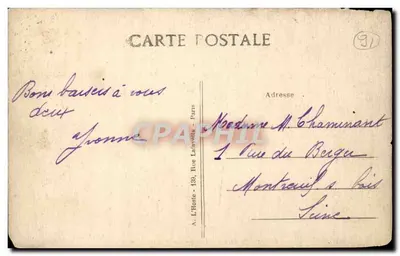 CARTE POSTALE
91
Bons baisers à vous
deux
Yvonne
CPAPHIL
A. L'Hoste - 130, Rue Lafayette - Paris
Adresse
Madame M. Chaminant
1 Rue du Berger
Montreuil s bois
Seine